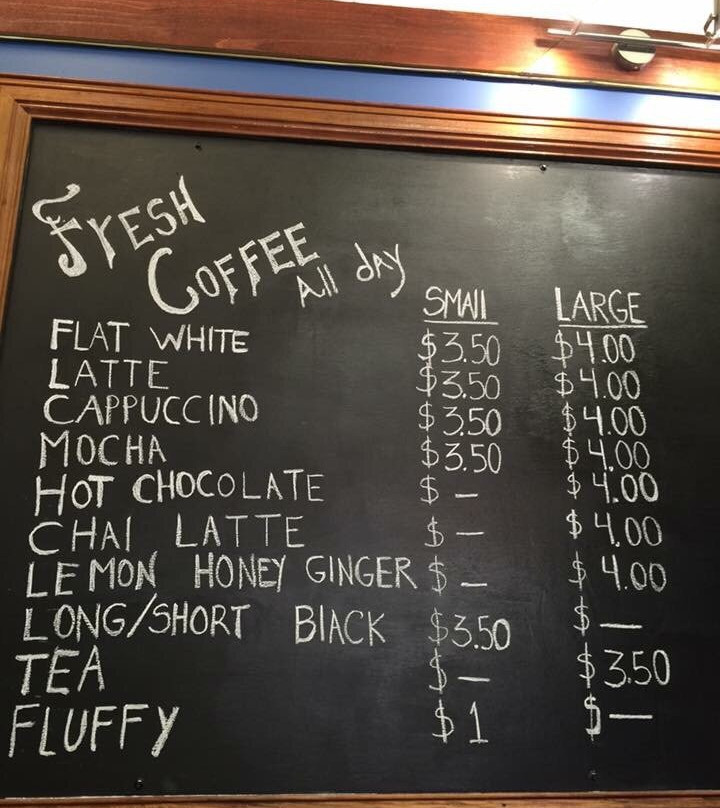 FRESH
COFFEE
All day
SMAll LARGE
FLAT WHITE $3.50 $4.00
LATTE $3.50 $4.00
CAPPUCCINO $3.50 $4.00
MOCHA $3.50 $4.00
HOT CHOCOLATE $ — $4.00
CHAI LATTE $ — $4.00
LEMON HONEY GINGER $ — $4.00
LONG/SHORT BlACK $3.50 $ —
TEA $ — $3.50
FLUFFY $1 $ —